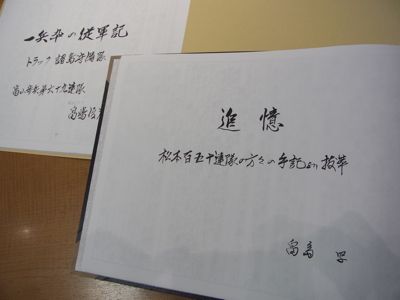 一兵卒の従軍記
トラック諸島守備隊
富山歩兵第六十九連隊
追憶
松本百五十連隊の方々の手記より抜萃